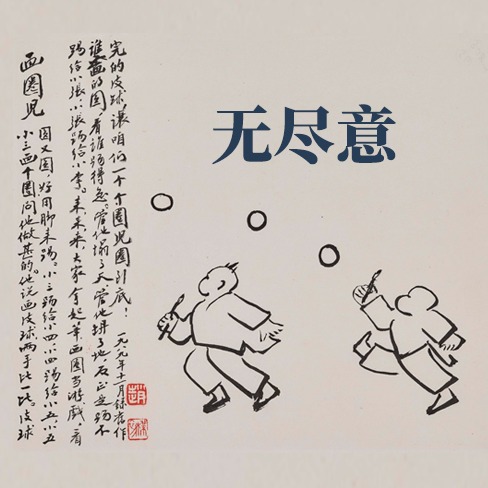 无尽意
画圈児
小三画个圈问他做甚的。他说画皮球两手比一比。皮球
圆又圆，好用脚来踢。小三踢给小四，小四踢给小五，小五
踢给小張，小張踢给小李。来来来，大家拿起笔画圈当游戏，看
谁画的圆，看谁踢得急。管他塌了天，管他拼了地，反正是踢不
完的皮球，讓咱们一个个圈児圈到底！
年十一月录旧作